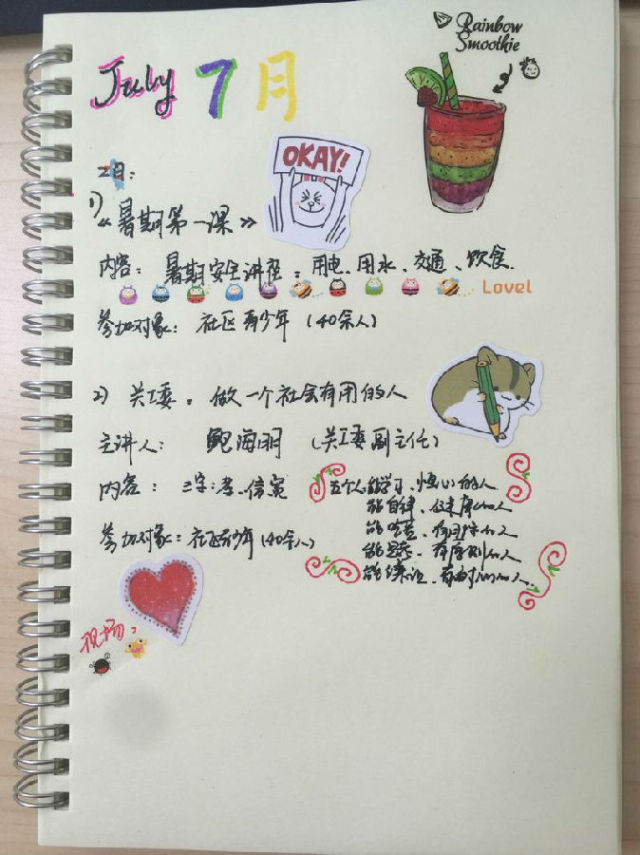 Rainbow
Smoothie
July 7月
OKAY!
2日:
1)
《暑期第一课》
内容: 暑期安全讲座: 用电、用水、交通、饮食.
Love!
参加对象: 社区青少年 (40余人)
2) 关工委: 做一个社会有用的人
主讲人: 鲍海明 (关工委副主任)
内容: 三字: 孝、信、
五个人: 能学习、 的人
能自律、 的人
能吃苦、 的人
的人
有 的人
参加对象: 社区青少年 (40余人)
现场: